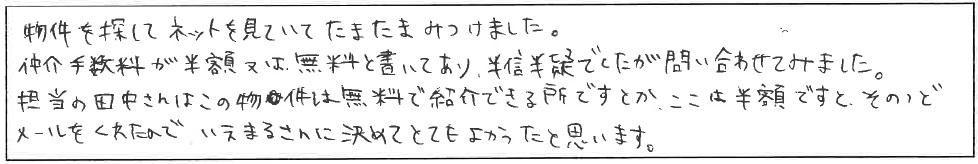 物件を探してネットを見ていてたまたまみつけました。
仲介手数料が半額又は無料と書いてあり、半信半疑でしたが問い合わせてみました。
担当の田中さんはこの物件は無料で紹介できる所ですとか、ここは半額ですと、そのつど
メールをくれたので、いえまるさんに決めてとてもよかったと思います。